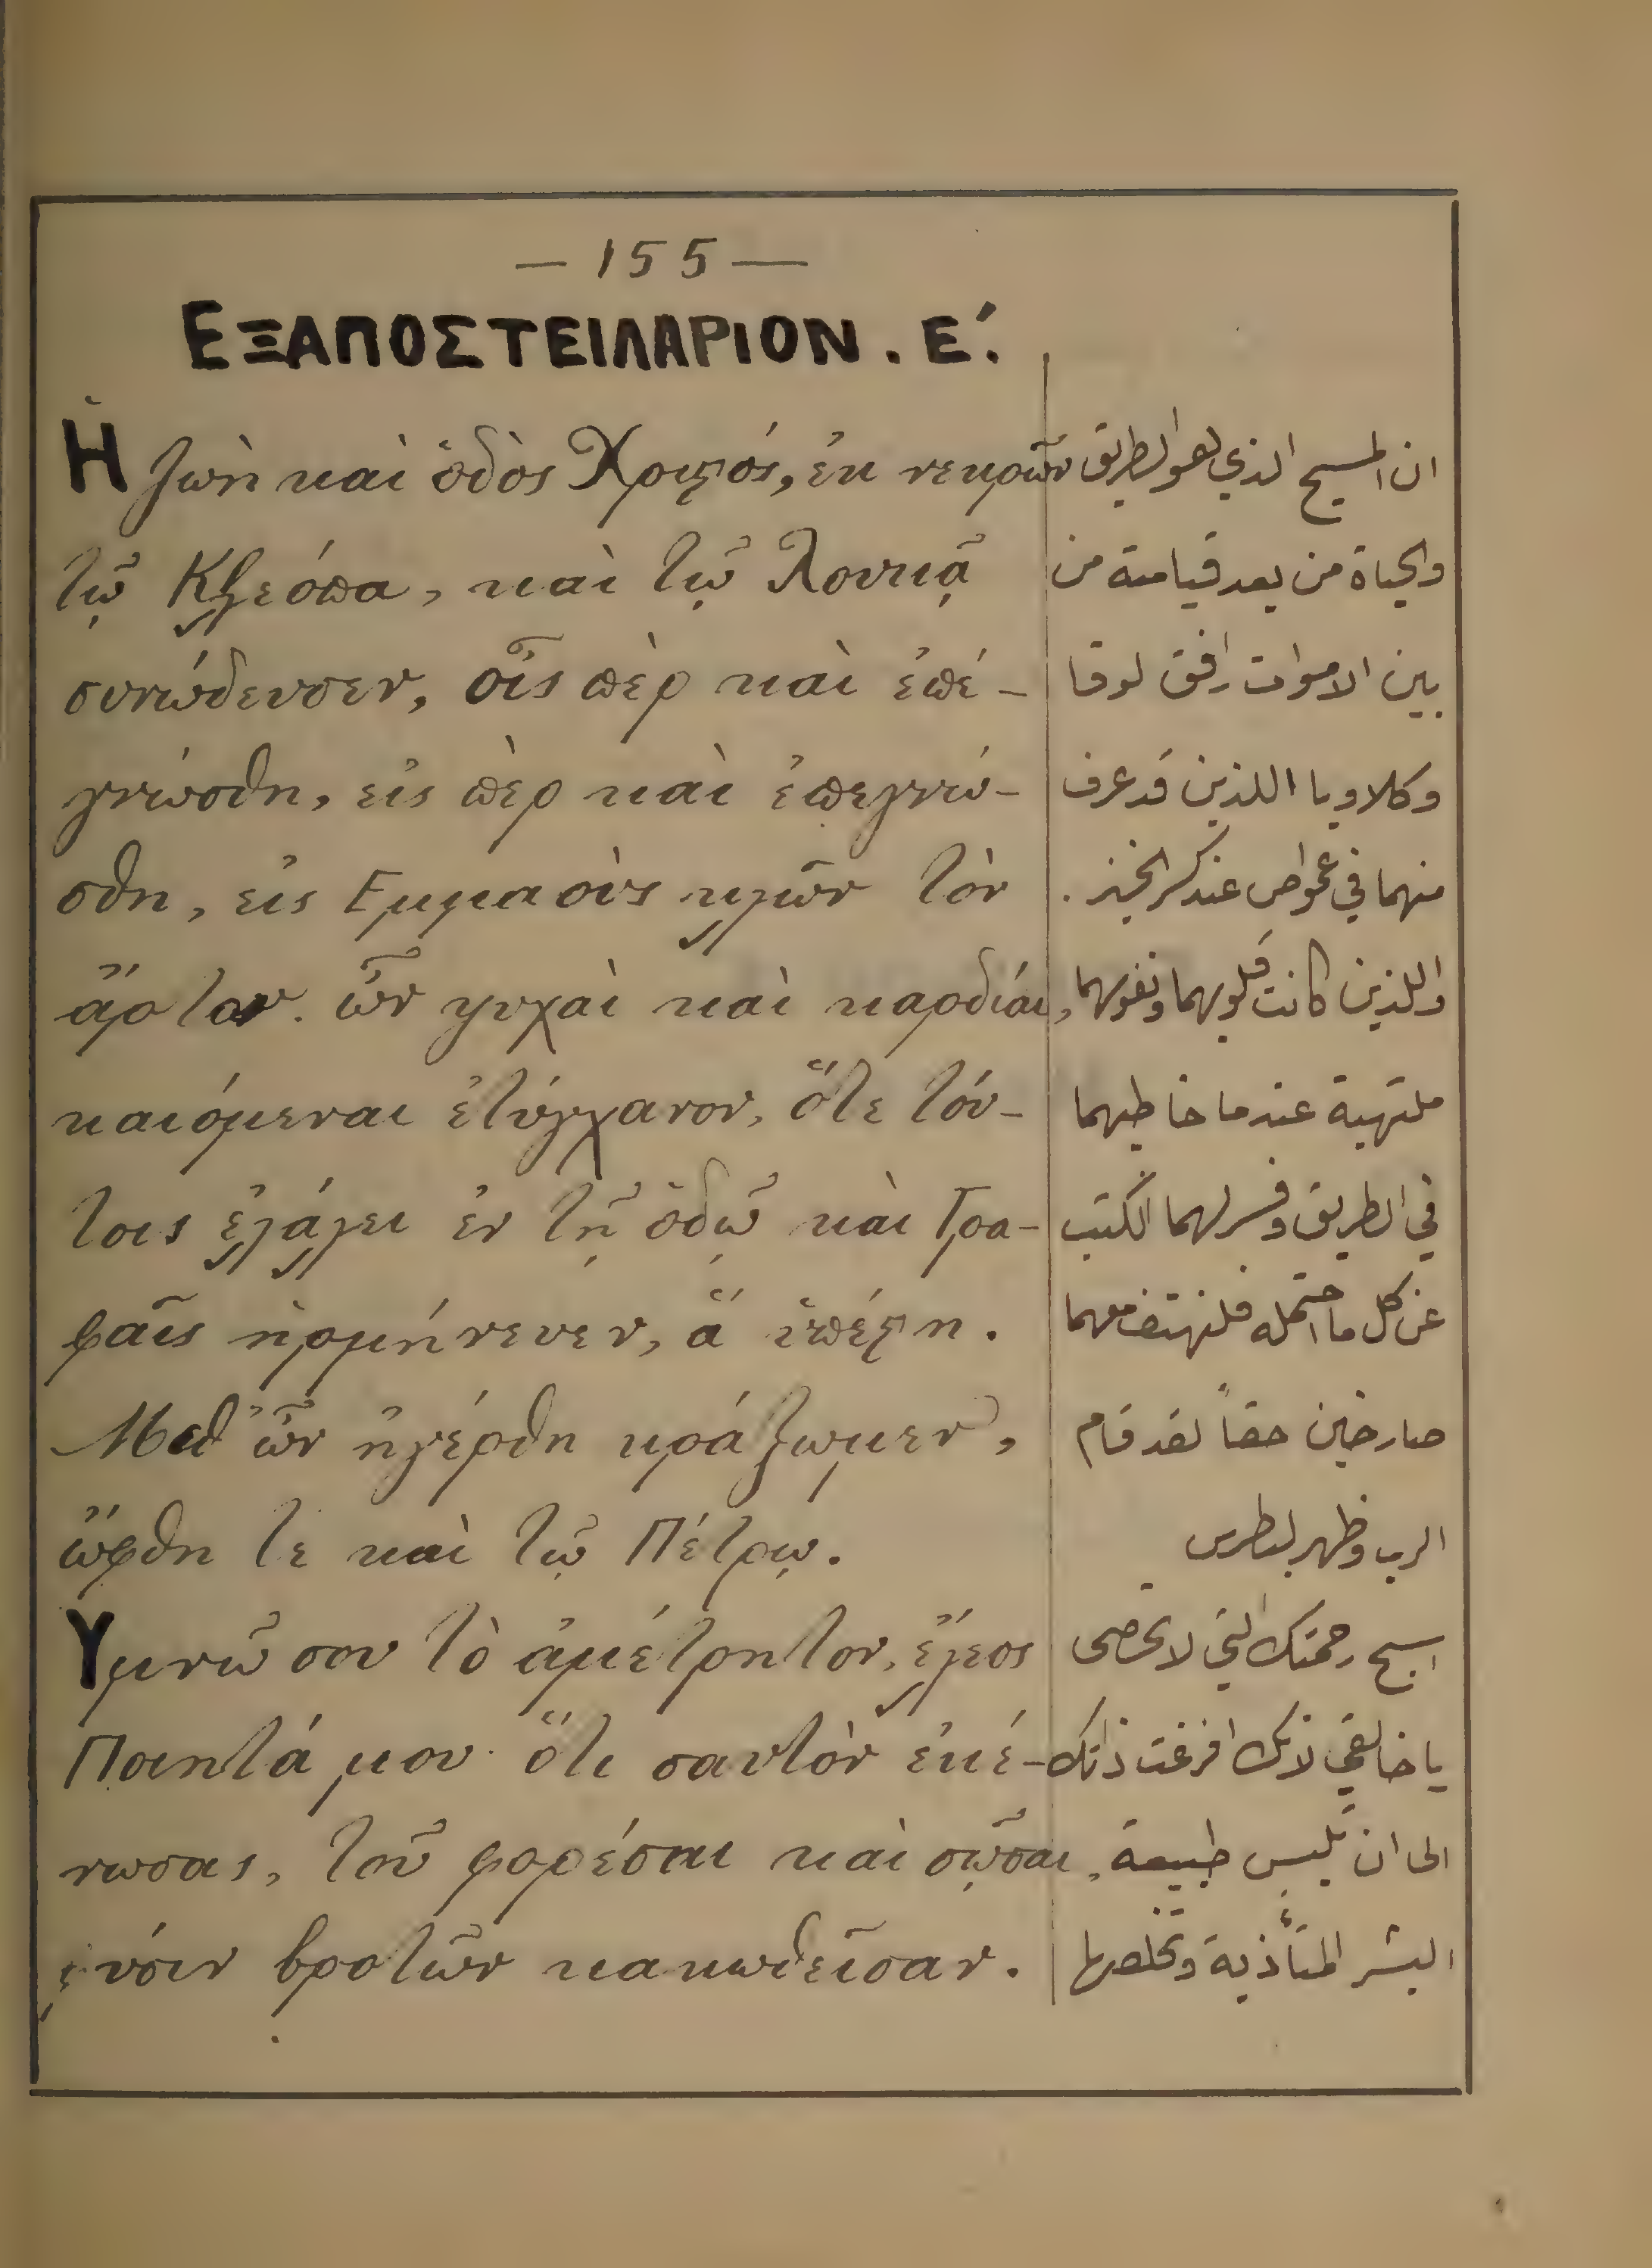 — 155 —
ΕΞΑΠΟΣΤΕΙΛΑΡΙΟΝ . Ε΄.
Ἡ ζωὴ καὶ ὁδὸς Χριϛός, ἐκ νεκρῶν
τῷ Κλεόπα, καὶ τῷ Λουκᾷ
συνώδευσεν, οἷς πὲρ καὶ ἐπέ-
γνώσθη, εἰς πὲρ καὶ ἐπεγνώ-
σθη, εἰς Εμμαοὺς κλῶν τὸν
ἄρτον. ὧν ψυχαὶ καὶ καρδίαι,
καιόμεναι ἐτύγχανον, ὅτε τού-
τοις ἐλάλει ἐν τῇ ὁδῷ καὶ Γρα-
φαῖς ἡρμήνευεν, ἅ ὑπέϛη.
Μεθ' ὧν ἠγέρθη κράζωμεν,
ὤφθη τε καὶ τῷ Πέτρῳ.
Υμνῶ σου τὸ ἀμέτρητον, ἔλεος
Ποιητά μου· ὅτι σαυτὸν ἐκέ-
νωσας, τοῦ φορέσαι καὶ σῷσαι,
φύσιν βροτῶν κακωθεῖσαν.
ان المسيح الذي هو الطريق
والحياة من بعد قيامته من
بين الاموات رافق لوقا
وكلاوبا اللذين قد عرف
منهما في عمواص عند كسر الخبز .
واللذين كانت قلوبهما ونفوسهما
ملتهبة عندما خاطبهما
في الطريق وفسر لهما الكتب
عن كل ما احتمله فلنهتف معهما
صارخين حقاً لقد قام
الرب وظهر لبطرس
اسبح رحمتك التي لا تحصى
يا خالقي لانك افرغت ذاتك
الى ان تلبس طبيعة
البشر المتأذية وتخلصها